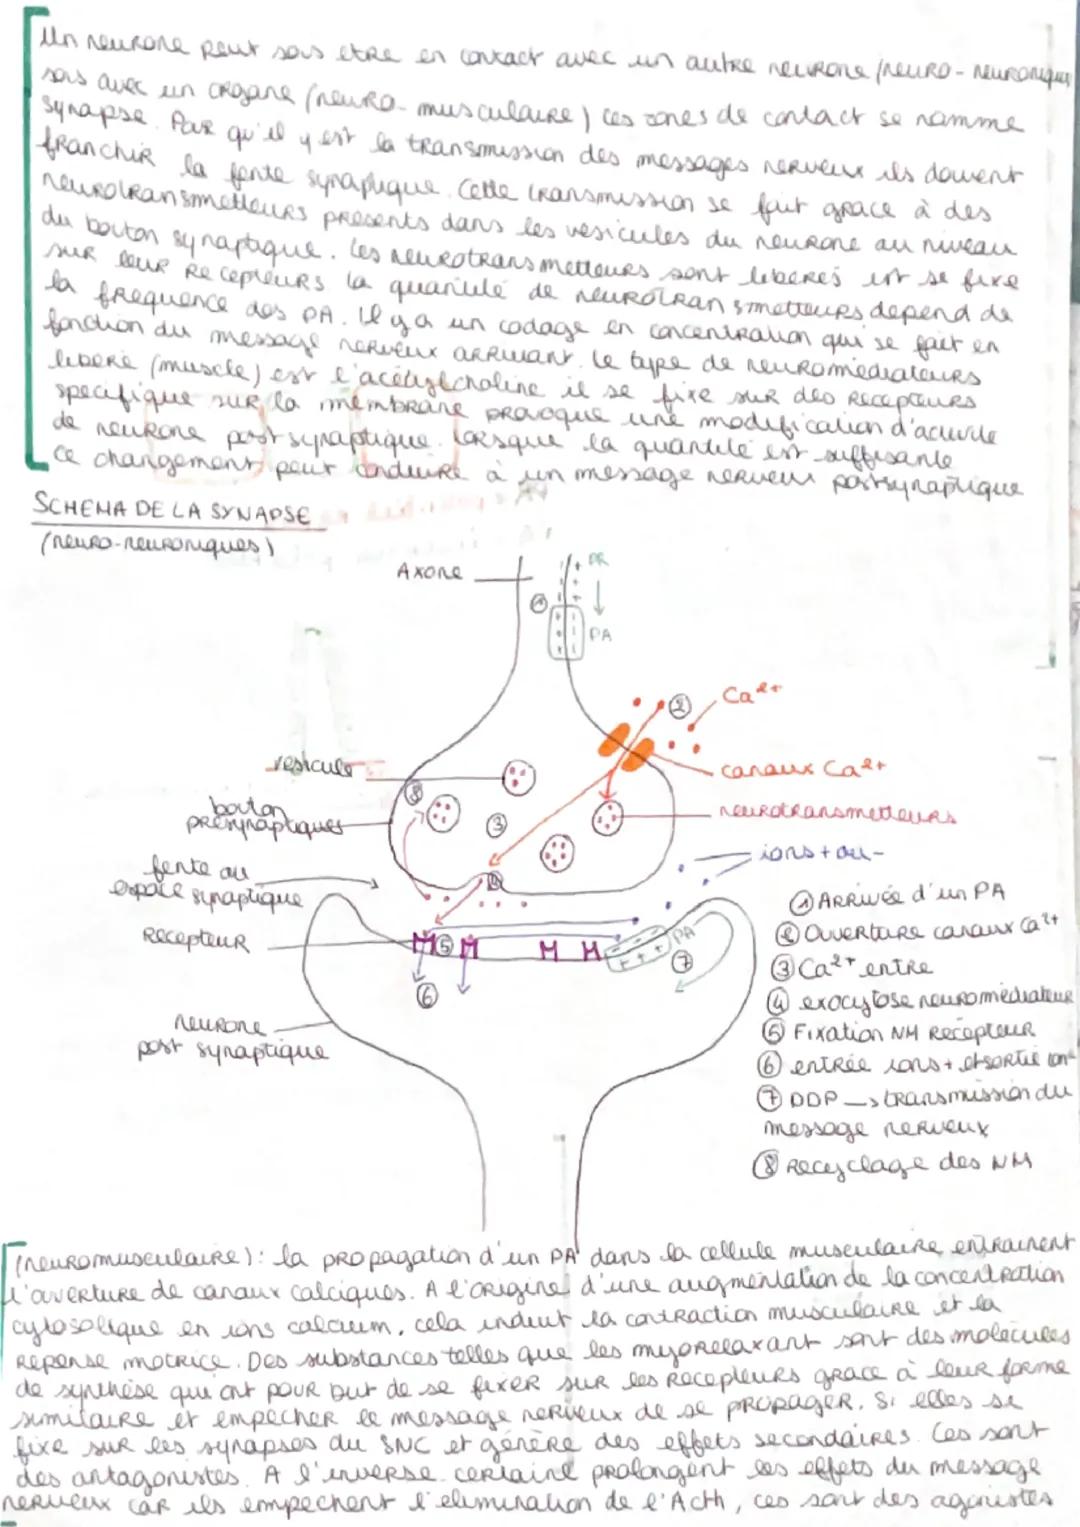 Un neurone peut sois etre en contact avec un autre neurone (neuro-neuroniques
sois avec un organe (neuro-musculaire) ces zones de contact se nomme
synapse. Pour qu'il y est la transmission des messages nerveux ils doivent
franchir la fente synaptique. Cette transmission se fait grace à des
neurotransmetteurs présents dans les vesicules du neurone au niveau
du bouton synaptique. Les neurotransmetteurs sont liberés est se fixe
sur leur Recepteurs la quantité de neurotransmetteurs depend de
la frequence des PA. Il y a un codage en concentration qui se fait en
fonction du message nerveux arrivant. Le type de neuromédiateurs
liberé (muscle) est l'acétylcholine il se fixe sur des recepteurs
specifique sur la membrane provoque une modification d'activité
de neurone postsynaptique. Lorsque la quantité est suffisante
ce changement peut conduire à un message nerveux postsynaptique
SCHEMA DE LA SYNAPSE
(neuro-neuroniques)
Axone
PR
①
PA
② Ca²⁺
vesicule
canaux Ca²⁺
bouton
présynaptiques
⑧
③
neurotransmetteurs
ions + ou -
fente ou
espace synaptique
④
Recepteur
⑤
PA
⑦
⑥
neurone
post synaptique
① Arrivée d'un PA
② Ouverture canaux Ca²⁺
③ Ca²⁺ entre
④ exocytose neuromédiateur
⑤ Fixation NM Recepteur
⑥ entrée ions+ et sortie ion-
⑦ DDP → transmission du
message nerveux
⑧ Recyclage des NM
(neuromusculaire): la propagation d'un PA dans la cellule musculaire entrainent
l'ouverture de canaux calciques. A l'origine d'une augmentation de la concentration
cytosolique en ions calcium, cela induit la contraction musculaire et la
reponse motrice. Des substances telles que les myorelaxant sont des molecules
de synthèse qui ont pour but de se fixer sur les Recepteurs grace à leur forme
similaire et empecher le message nerveux de se propager. Si elles se
fixe sur les synapses du SNC et génère des effets secondaires. Ces sont
des antagonistes. A l'inverse certaine prolongent les effets du message
nerveux car ils empechent l'elimination de l'Acth, ces sont des agonistes